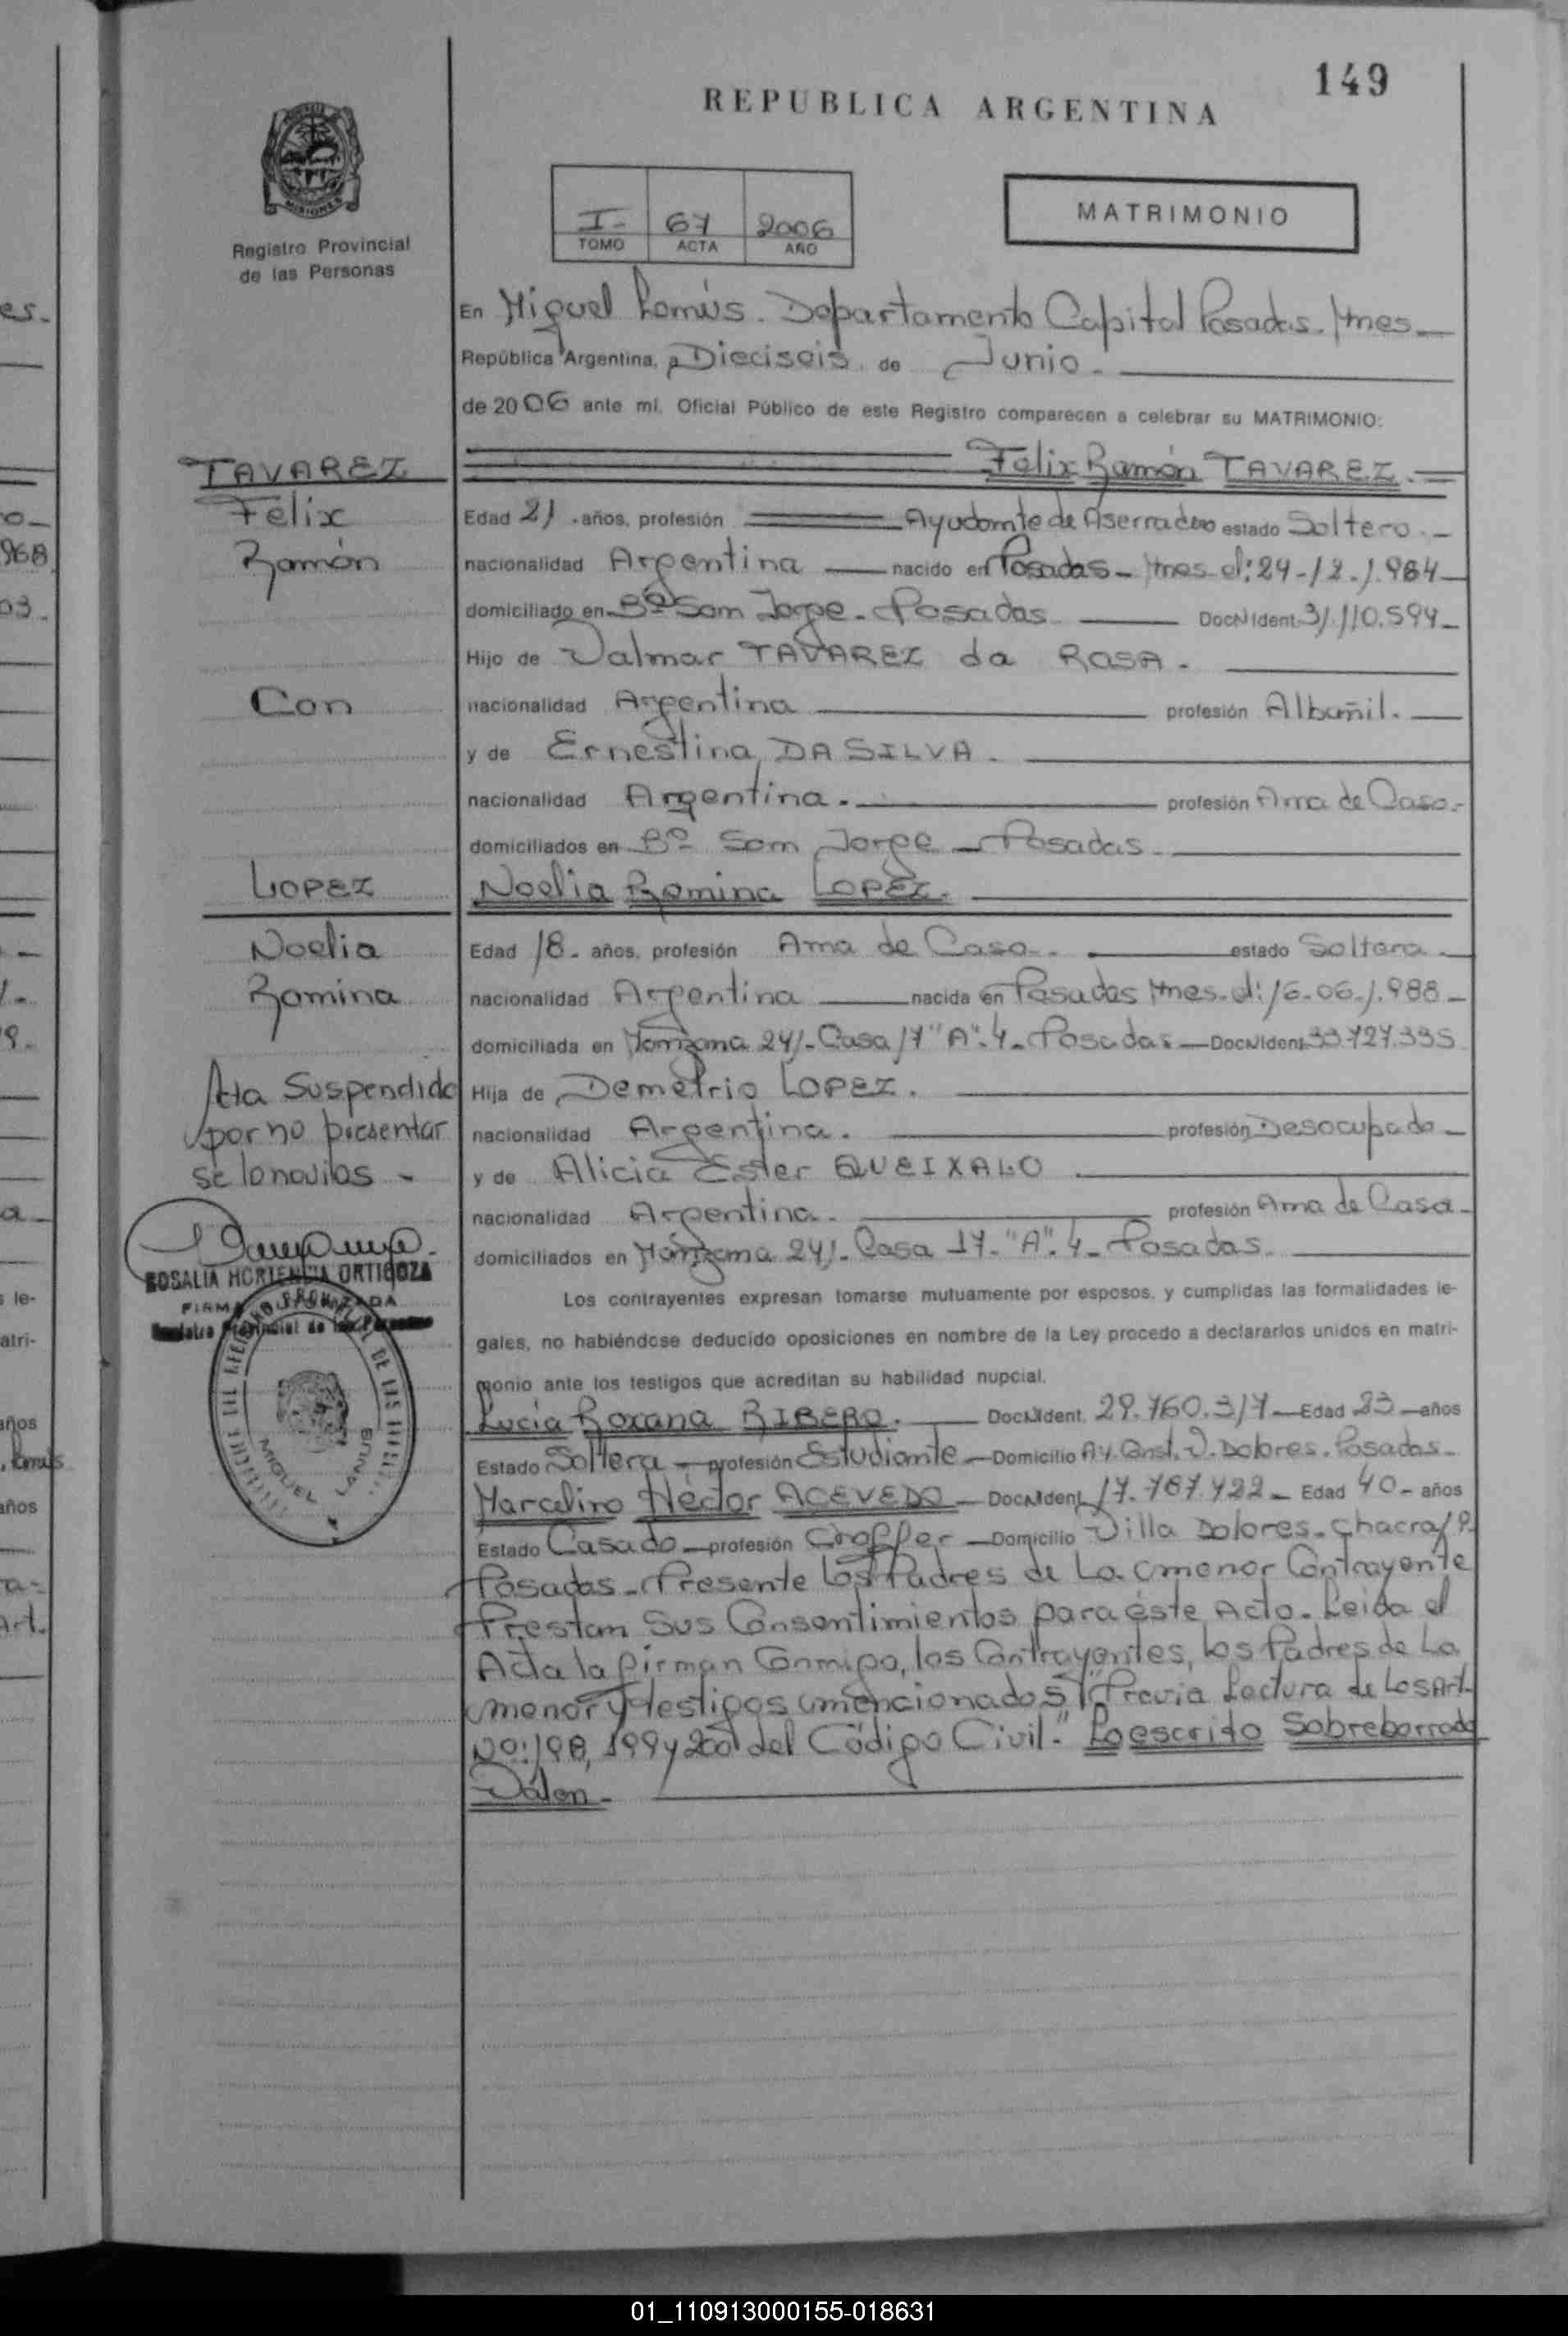 149
REPUBLICA ARGENTINA
MISIONES
Registro Provincial
de las Personas
I- 67 2006
TOMO ACTA AÑO
MATRIMONIO
En Miguel Lanús. Departamento Capital Posadas. Mnes
República Argentina, a Dieciseis de Junio.
de 2006 ante mí, Oficial Público de este Registro comparecen a celebrar su MATRIMONIO:
TAVAREZ
Felix
Ramón
Con
LOPEZ
Noelia
Romina
Acta Suspendida
por no presentar
se lo novios -
ROSALIA HORTENCIA ORTIGOZA
FIRMA AUTORIZADA
Registro Provincial de las Personas
MIGUEL LANUS
Felix Ramón TAVAREZ.
Edad 21 años, profesión Ayudante de Aserradero estado Soltero.-
nacionalidad Argentina nacido en Posadas- Mnes el: 29-12-1.984
domiciliado en Bº San Jorge- Posadas DocNIdent 31.110.594-
Hijo de Valmar TAVAREZ da ROSA.
nacionalidad Argentina profesión Albañil.
y de Ernestina DA SILVA.
nacionalidad Argentina. profesión Ama de Casa.-
domiciliados en Bº San Jorge - Posadas
Noelia Romina LOPEZ.
Edad 18. años, profesión Ama de Casa. estado Soltera.
nacionalidad Argentina nacida en Posadas Mnes. el: 16-06-1.988-
domiciliada en Manzana 241- Casa 17 "A"- 4- Posadas. DocNIdent 33.727.335
Hija de Demetrio LOPEZ.
nacionalidad Argentina. profesión Desocupado-
y de Alicia Ester QUEIXALO
nacionalidad Argentina. profesión Ama de Casa-
domiciliados en Manzana 241- Casa 17- "A"- 4- Posadas
Los contrayentes expresan tomarse mutuamente por esposos, y cumplidas las formalidades le-
gales, no habiéndose deducido oposiciones en nombre de la Ley procedo a declararlos unidos en matri-
monio ante los testigos que acreditan su habilidad nupcial.
Lucía Roxana RIBERO. DocNIdent. 29.760.317 Edad 23 años
Estado Soltera - profesión Estudiante - Domicilio Av. Const. V. Dolores. Posadas-
Marcelino Héctor ACEVEDO - DocNIdent 17.787.422- Edad 40- años
Estado Casado - profesión Choffer - Domicilio Villa Dolores- Chacra
Posadas- Presente Los Padres de La menor Contrayente
Prestan Sus Consentimientos para éste Acto. Leida el
Acta la firman Conmigo, los Contrayentes, los Padres de La
menor y testigos mencionados "Previa Lectura de Los Art.
Nº: 198, 199 y 200 del Código Civil." Lo escrito Sobreborrado
Valen-
es.
968
03.
9.
le-
atri-
años
años
Art.
01_110913000155-018631